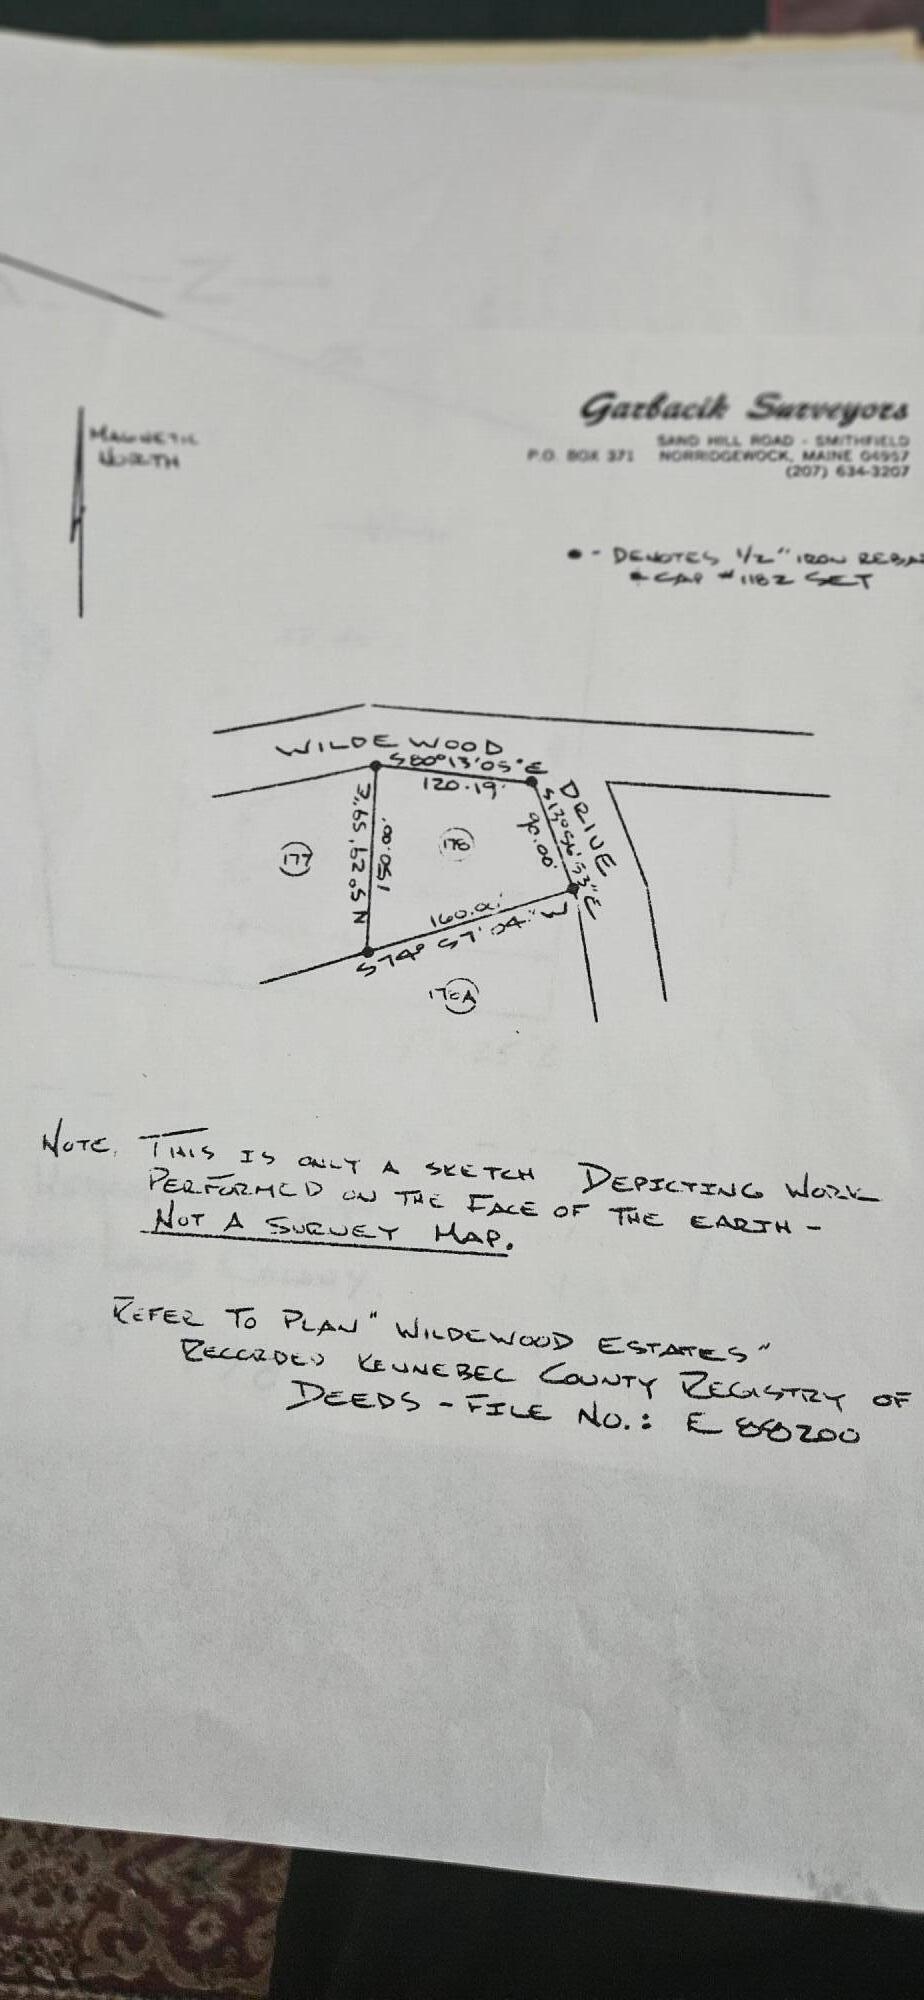 Garbacik Surveyors
SAND HILL ROAD - SMITHFIELD
P.O. BOX 371 NORRIDGEWOCK, MAINE 04957
(207) 634-3207
MAGNETIC
NORTH
● - DENOTES 1/2" IRON REBA
& CAP #1182 SET
WILDEWOOD
S80°13'05"E
120.19'
DRIVE
S13°56'53"E
90.00'
N 5°29'59"E
150.00'
177
178
S74° 57' 04" W
NOTE: THIS IS ONLY A SKETCH DEPICTING WORK
PERFORMED ON THE FACE OF THE EARTH -
NOT A SURVEY MAP.
REFER TO PLAN "WILDEWOOD ESTATES"
RECORDED KENNEBEC COUNTY REGISTRY OF
DEEDS - FILE NO.: E 88200